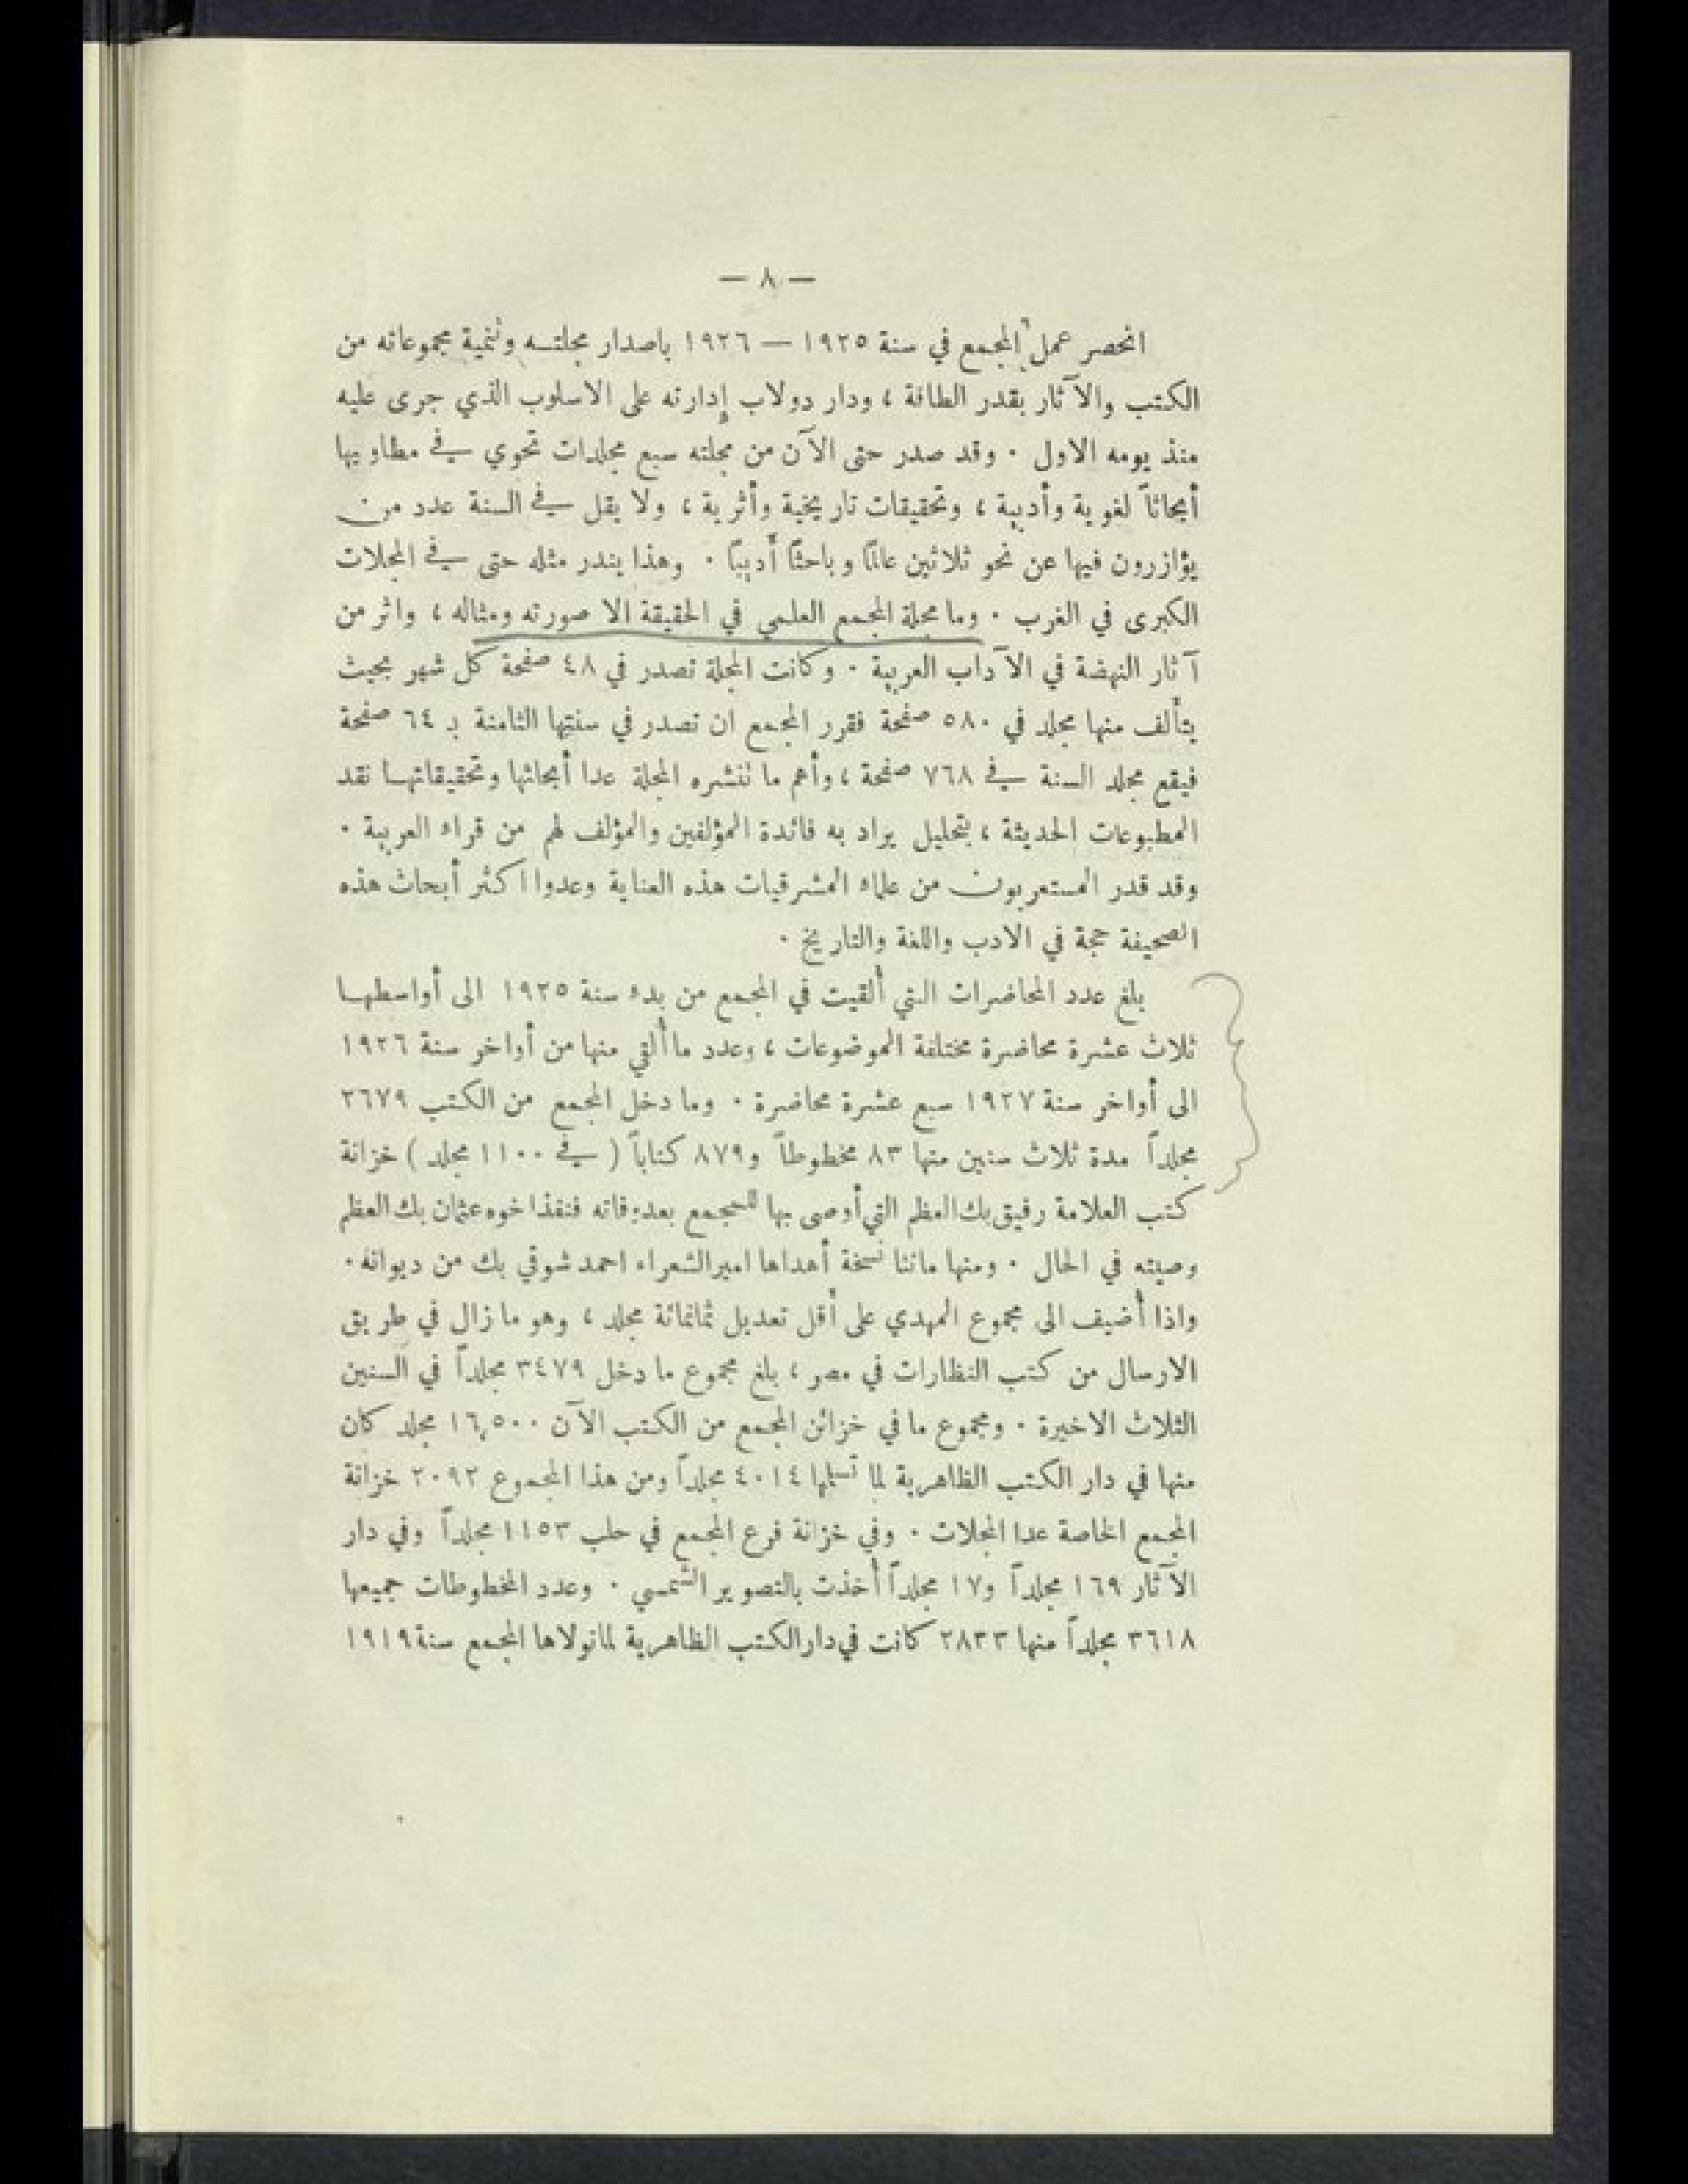 — ٨ —
انحصر عمل المجمع في سنة ١٩٢٥ — ١٩٢٦ باصدار مجلتـه وتنمية مجموعاته من
الكتب والآثار بقدر الطاقة ، ودار دولاب إدارته على الاسلوب الذي جرى عليه
منذ يومه الاول . وقد صدر حتى الآن من مجلته سبع مجلدات تحوي في مطاويها
أبحاثاً لغوية وأدبية ، وتحقيقات تاريخية وأثرية ، ولا يقل في السنة عدد من
يؤازرون فيها عن نحو ثلاثين عالمًا وباحثًا أديبًا . وهذا يندر مثله حتى في المجلات
الكبرى في الغرب . وما مجلة المجمع العلمي في الحقيقة الا صورته ومثاله ، واثر من
آثار النهضة في الآداب العربية . وكانت المجلة تصدر في ٤٨ صفحة كل شهر بحيث
يتألف منها مجلد في ٥٨٠ صفحة فقرر المجمع ان تصدر في سنتها الثامنة بـ ٦٤ صفحة
فيقع مجلد السنة في ٧٦٨ صفحة ، وأهم ما تنشره المجلة عدا أبحاثها وتحقيقاتهـا نقد
المطبوعات الحديثة ، بتحليل يراد به فائدة المؤلفين والمؤلف لهم من قراء العربية .
وقد قدر المستعربون من علماء المشرقيات هذه العناية وعدوا اكثر أبحاث هذه
الصحيفة حجة في الادب واللغة والتاريخ .
بلغ عدد المحاضرات التي ألقيت في المجمع من بدء سنة ١٩٢٥ الى أواسطهـا
ثلاث عشرة محاضرة مختلفة الموضوعات ، وعدد ما ألقي منها من أواخر سنة ١٩٢٦
الى أواخر سنة ١٩٢٧ سبع عشرة محاضرة . وما دخل المجمع من الكتب ٢٦٧٩
مجلداً مدة ثلاث سنين منها ٨٣ مخطوطاً و٨٧٩ كتاباً ( في ١١٠٠ مجلد ) خزانة
كتب العلامة رفيق بك العظم التي أوصى بها للمجمع بعد وفاته فنفذ اخوه عثمان بك العظم
وصيته في الحال . ومنها مائتا نسخة أهداها امير الشعراء احمد شوقي بك من ديوانه .
واذا أضيف الى مجموع المهدي على أقل تعديل ثمانمائة مجلد ، وهو ما زال في طريق
الارسال من كتب النظارات في مصر ، بلغ مجموع ما دخل ٣٤٧٩ مجلداً في السنين
الثلاث الاخيرة . ومجموع ما في خزائن المجمع من الكتب الآن ١٦,٥٠٠ مجلد كان
منها في دار الكتب الظاهرية لما تسلمها ٤٠١٤ مجلداً ومن هذا المجموع ٢٠٩٢ خزانة
المجمع الخاصة عدا المجلات . وفي خزانة فرع المجمع في حلب ١١٥٣ مجلداً وفي دار
الآثار ١٦٩ مجلداً و١٧ مجلداً أخذت بالتصوير الشمسي . وعدد المخطوطات جميعها
٣٦١٨ مجلداً منها ٢٨٣٣ كانت في دار الكتب الظاهرية لما تولاها المجمع سنة ١٩١٩